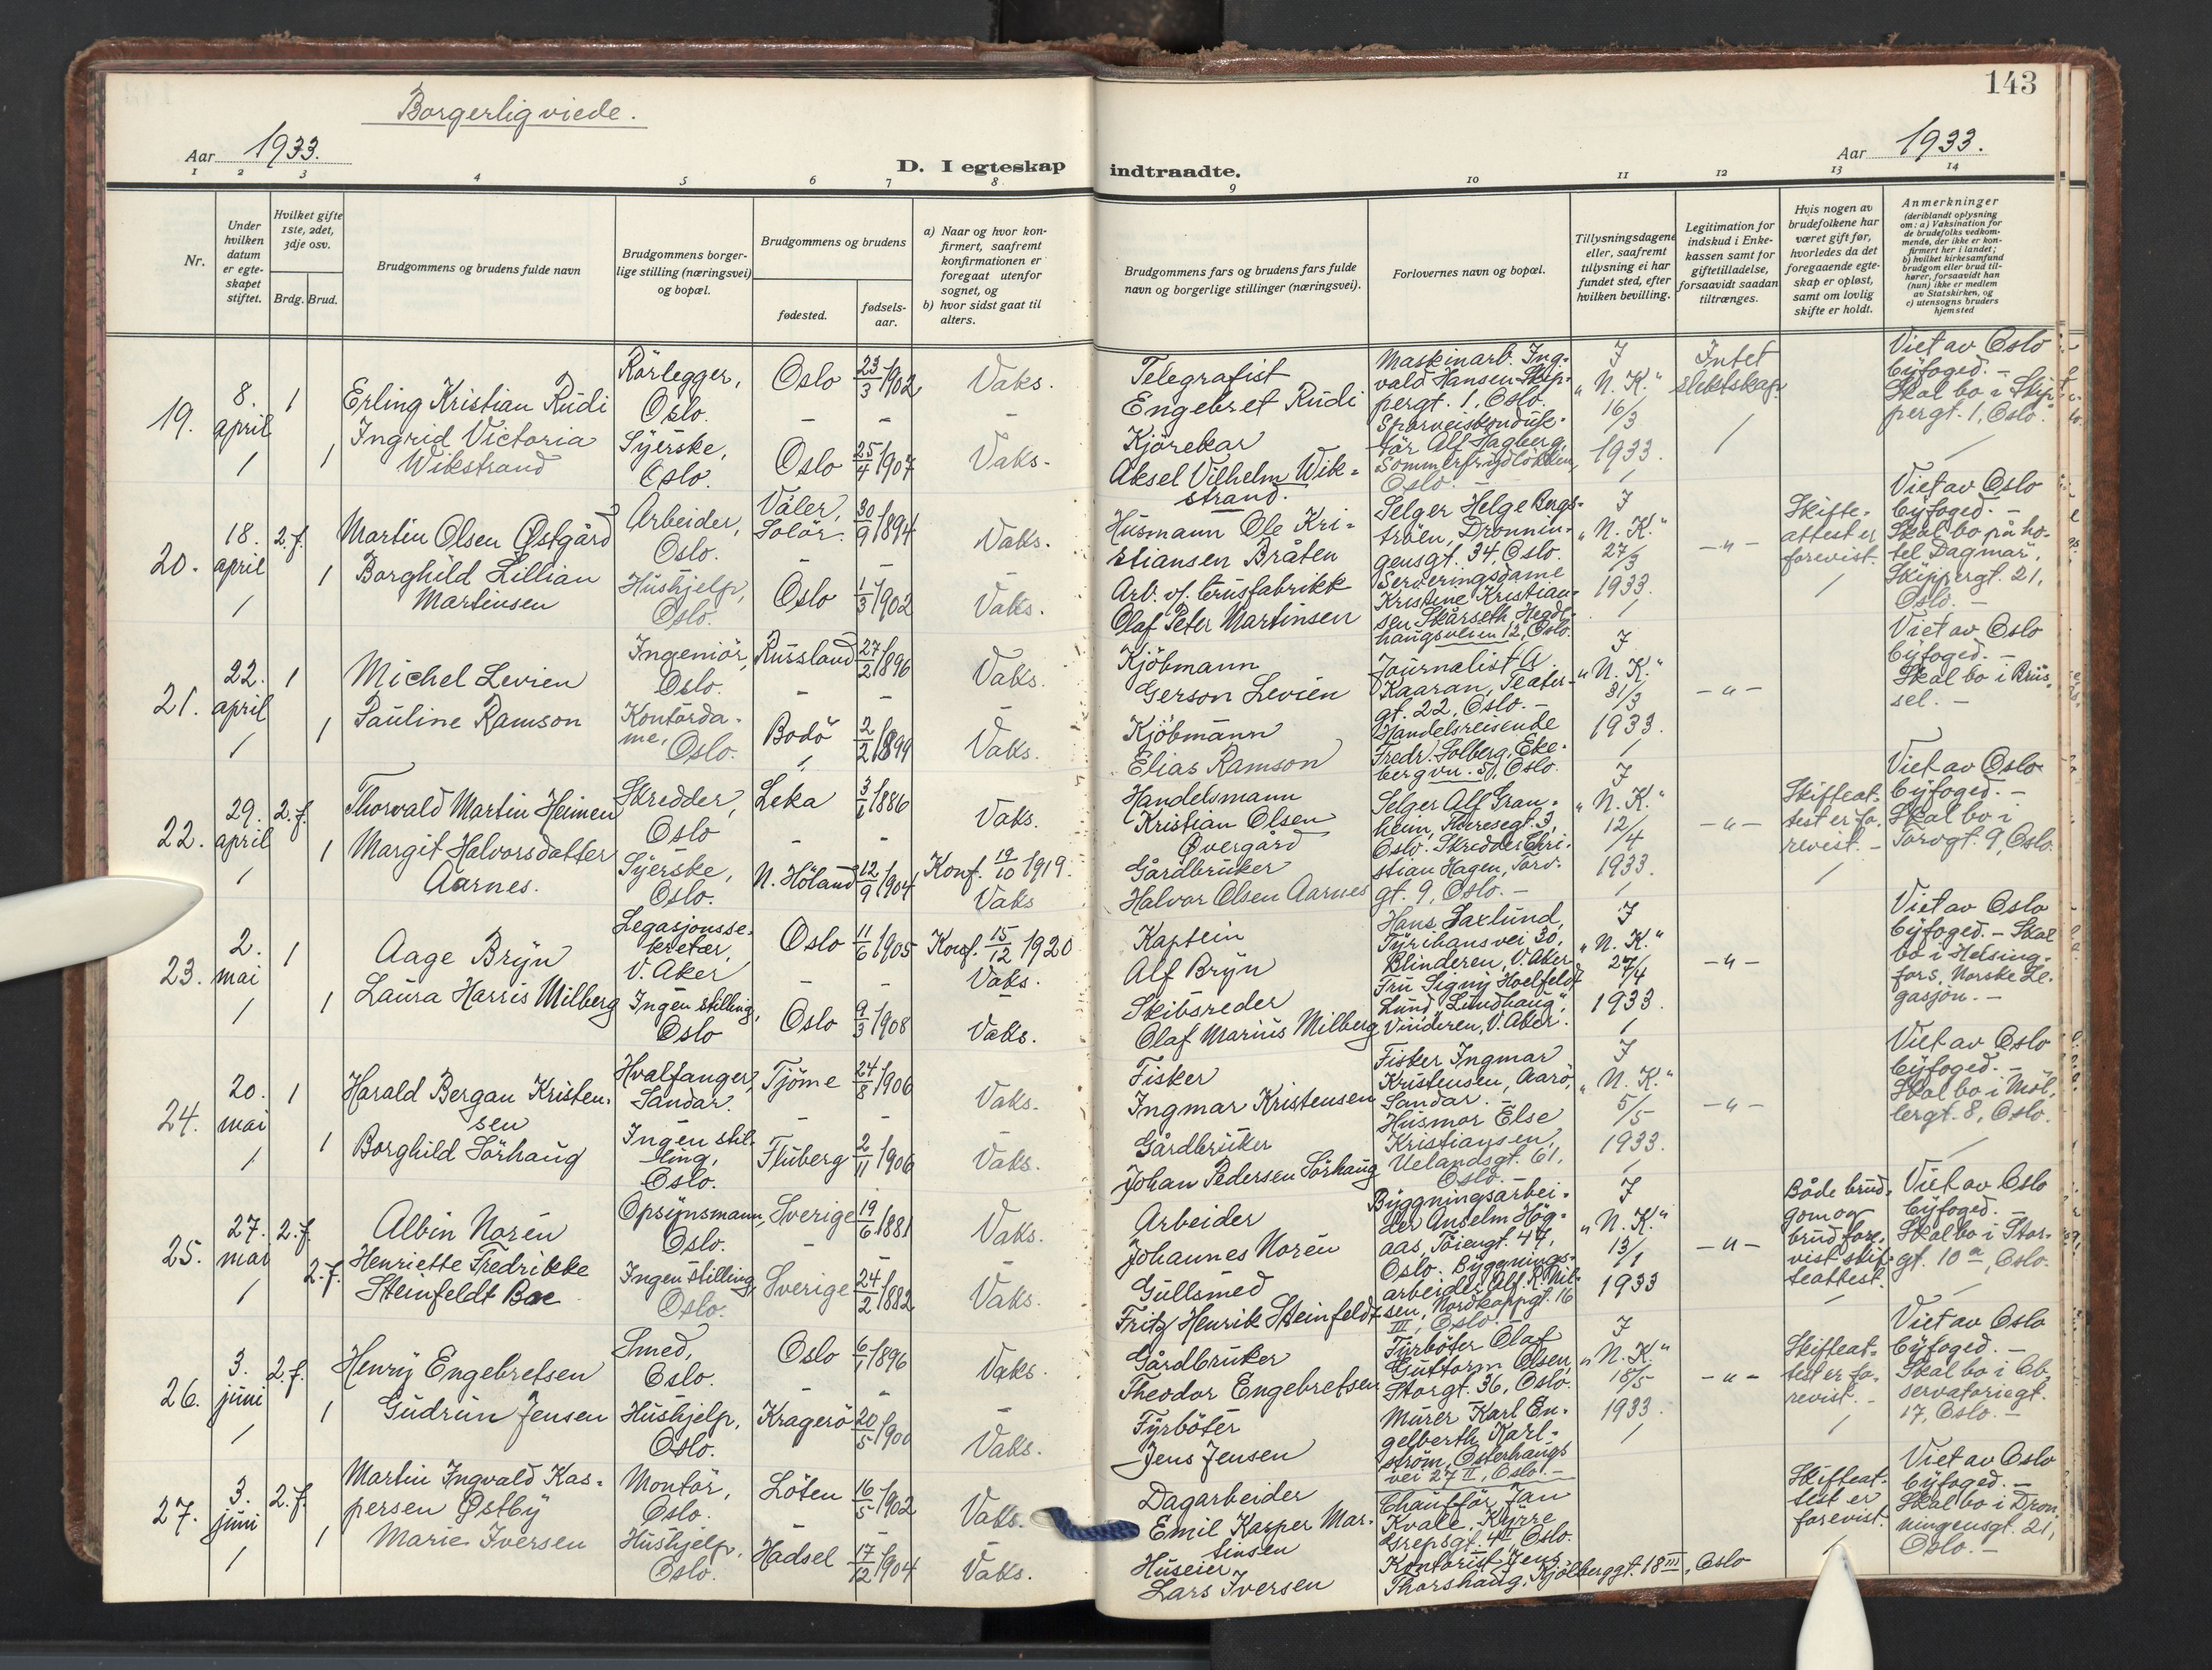 143
Borgerlig viede.
Aar 1933.
Aar 1933.
D. I egteskap indtraadte.
1 2 3 4 5 6 7 8 9 10 11 12 13 14
Nr.
Under hvilken datum er egteskapet stiftet.
Hvilket gifte 1ste, 2det, 3dje osv.
Brdg. Brud.
Brudgommens og brudens fulde navn
Brudgommens borgerlige stilling (næringsvei) og bopæl.
Brudgommens og brudens
fødested.
fødselsaar.
a) Naar og hvor konfirmert, saafremt konfirmationen er foregaat utenfor sognet, og
b) hvor sidst gaat til alters.
Brudgommens fars og brudens fars fulde navn og borgerlige stillinger (næringsvei).
Forlovernes navn og bopæl.
Tillysningsdagene eller, saafremt tillysning ei har fundet sted, efter hvilken bevilling.
Legitimation for indskud i Enkekassen samt for giftetilladelse, forsaavidt saadan tiltrænges.
Hvis nogen av brudefolkene har været gift før, hvorledes da det foregaaende egteskap er opløst, samt om lovlig skifte er holdt.
Anmerkninger (deriblandt oplysning om: a) Vaksination for de brudefolks vedkommende, der ikke er konfirmert her i landet; b) hvilket kirkesamfund brudgom eller brud tilhører, forsaavidt han (hun) ikke er medlem av Statskirken, og c) utensogns bruders hjemsted
19.
8. april
1
Erling Kristian Rudi
Rørlegger, Oslo.
Oslo
23/3 1902
Vaks.
1
Ingrid Victoria Wikstrand
Syerske, Oslo.
Oslo
25/4 1907
Vaks.
Telegrafist Engebret Rudi
Kjørekar Aksel Vilhelm Wikstrand.
Maskinarb. Ingvald Hansen Skippergt. 1, Oslo.
Sporveiskonduktør Alf Hagberg, Sommerfrydløkken, Oslo.
I "N. K." 16/3 1933.
Intet slektskap.
Viet av Oslo byfoged. - Skal bo i Skippergt. 1, Oslo.
20.
18. april
2. f.
Martin Olsen Østgård
Arbeider, Oslo.
Våler, Solør.
30/9 1894
Vaks.
1
Borghild Lillian Martinsen
Hushjelp, Oslo.
Oslo
1/3 1902
Vaks.
Husmann Ole Kristiansen Bråten
Arb. v/. brusfabrikk Olaf Peter Martinsen
Selger Helge Bergstrøen, Dronningensgt. 34, Oslo.
Serveringsdame Kristine Kristiansen Skårseth, Hegdehaugsveien 12, Oslo.
I "N. K." 27/3 1933.
- " -
Skifteattest er forevist.
Viet av Oslo byfoged. - Skal bo på hotel Dagmar, Skippergt. 21, Oslo. -
21.
22. april
1
Michel Levien
Ingeniør, Oslo.
Russland
27/2 1896
Vaks.
1
Pauline Ramson
Kontordame, Oslo.
Bodø
2/2 1899
Vaks.
Kjøbmann Gerson Levien
Kjøbmann Elias Ramson
Journalist A. Kaaran, Teatergt. 22, Oslo. -
Handelsreisende Fredr. Solberg, Ekebergvn. 51, Oslo.
I "N. K." 31/3 1933.
- " -
Viet av Oslo byfoged. - Skal bo i Brüssel. -
22.
29. april
2. f.
Thorvald Martin Heimen
Skredder, Oslo
Leka
3/1 1886
Vaks.
1
Margit Halvorsdatter Aarnes.
Syerske, Oslo.
N. Høland
12/9 1904
Konf. 19/10 1919. Vaks
Handelsmann Kristian Olsen Øvergård
Gårdbruker Halvor Olsen Aarnes
Selger Alf Granheim, Theresegt. 3, Oslo. Skredder Christian Hagen, Torvgt. 9, Oslo. -
I "N. K." 12/4 1933.
- " -
Skifteattest er forevist. -
Viet av Oslo byfoged. - Skal bo i Torvgt. 9, Oslo.
23.
2. mai
1
Aage Bryn
Legasjonssekretær, V. Aker
Oslo
11/6 1905
Konf. 15/12 1920 Vaks.
1
Laura Harris Milberg
Ingen stilling, Oslo
Oslo
9/3 1908
Vaks.
Kaptein Alf Bryn
Skibsreder Olaf Marius Milberg
Hans Saxlund, Tyrihansvei 30, Blinderen, V. Aker
Fru Signy Hoelfeldt Lund, "Lundhaug", Vinderen, V. Aker.
I "N. K." 27/4 1933.
- " -
Viet av Oslo byfoged. - Skal bo i Helsingfors, Norske Legasjon. -
24.
20. mai
1
Harald Bergan Kristensen
Hvalfanger, Sandar.
Tjøme
24/8 1906
Vaks.
1
Borghild Sørhaug
Ingen stilling, Oslo.
Fluberg
2/11 1906
Vaks.
Fisker Ingmar Kristensen
Gårdbruker Johan Pedersen Sørhaug
Fisker Ingmar Kristensen, Aarø, Sandar. -
Husmor Else Kristiansen, Uelandsgt. 61, Oslo. -
I "N. K." 5/5 1933.
- " -
Viet av Oslo byfoged. - Skal bo i Møllergt. 8, Oslo.
25.
27. mai
2. f.
Albin Norén
Opsynsmann, Oslo.
Sverige
19/6 1881
Vaks.
2. f.
Henriette Fredrikke Steinfeldt Boe
Ingen stilling, Oslo.
Sverige
24/2 1882
Vaks.
Arbeider Johannes Norén
Gullsmed Fritz Henrik Steinfeldt
Bygningsarbeider Anselm Høgaas, Tøiengt. 47, Oslo. Bygningsarbeider Alf R. Nilsen, Nordkappgt. 16 III, Oslo. -
I "N. K." 13/1 1933
- " -
Både brudgom og brud forevist skifteattest.
Viet av Oslo byfoged. - Skal bo i Storgt. 10 a, Oslo.
26.
3. juni
2. f.
Henry Engebretsen
Smed, Oslo.
Oslo
6/1 1896
Vaks.
1
Gudrun Jensen
Hushjelp, Oslo.
Kragerø
20/5 1900
Vaks.
Gårdbruker Theodor Engebretsen
Fyrbøter Jens Jensen
Fyrbøter Olaf Guttorm Olsen, Storgt. 36, Oslo.
Murer Karl Engelberth Karlstrøm, Østerhaugsvei 27 II, Oslo. -
I "N. K." 15/5 1933.
- " -
Skifteattest er forevist. -
Viet av Oslo byfoged. - Skal bo i Observatoriegt. 17, Oslo. -
27.
3. juni
2. f.
Martin Ingvald Kaspersen Østby
Montør, Oslo.
Løten
16/5 1902
Vaks.
1
Marie Iversen
Hushjelp, Oslo.
Hadsel
17/12 1904
Vaks.
Dagarbeider Emil Kasper Martinsen
Huseier Lars Iversen
Chauffør Jan Kvale, Kyrre Grepsgt. 4 II, Oslo.
Kontorist Jens Thorshaug, Kjølberggt. 18 III, Oslo
Skifteattest er forevist.
Viet av Oslo byfoged. - Skal bo i Dronningensgt. 21, Oslo. -